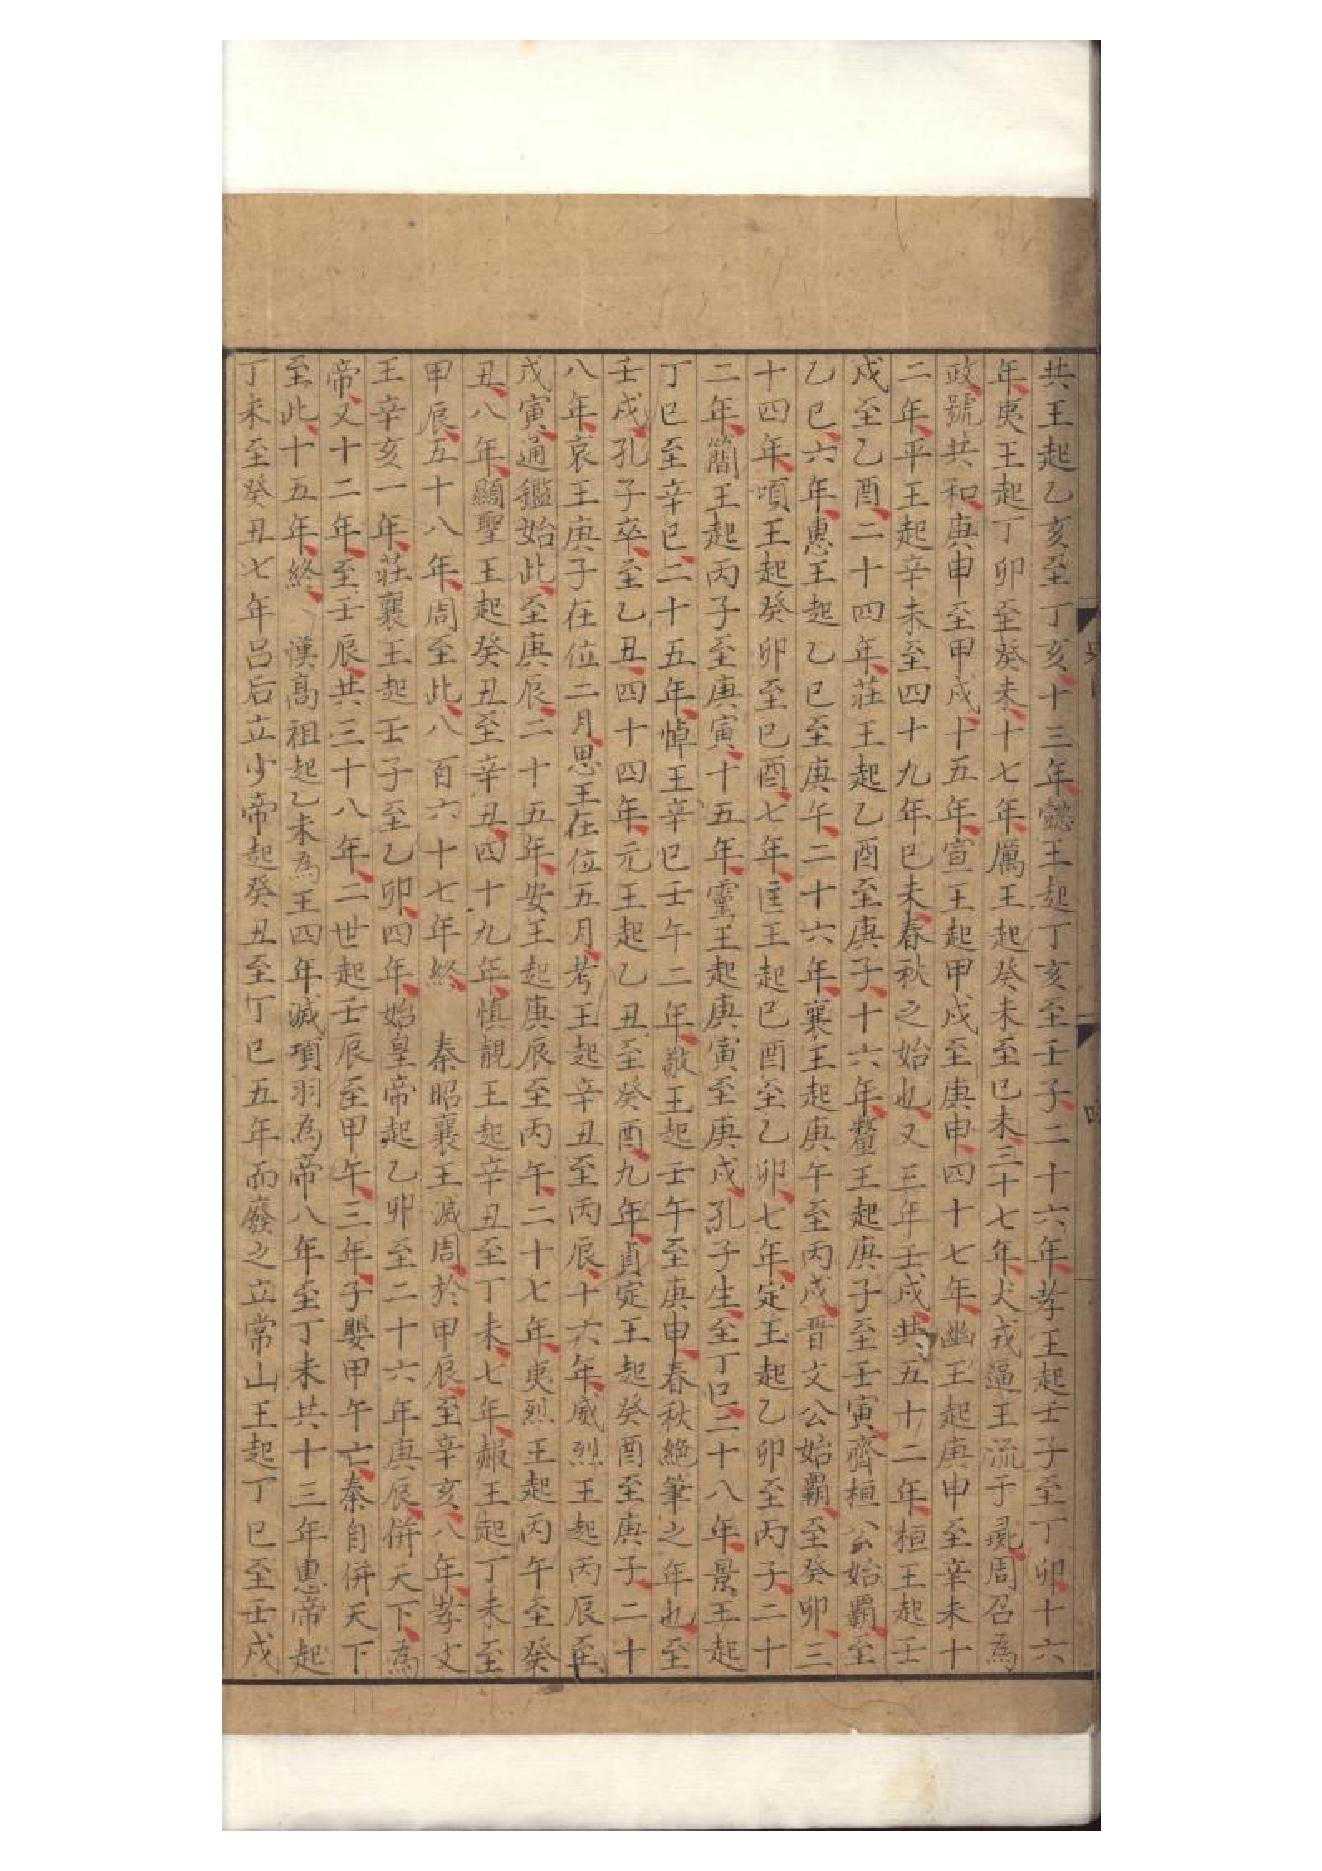 共王起乙亥至丁亥十三年懿王起丁亥至壬子二十六年孝王起壬子至丁卯十六
年夷王起丁卯至癸未十七年厲王起癸未至巳未三十七年犬戎逼王流于彘周召為
政號共和庚申至甲戍十五年宣王起甲戍至庚申四十七年幽王起庚申至辛未十
二年平王起辛未至四十九年巳未春秋之始也又三年壬戍共五十二年桓王起壬
戍至乙酉二十四年莊王起乙酉至庚子十六年釐王起庚子至壬寅齊桓公始霸至
乙巳六年惠王起乙巳至庚午二十六年襄王起庚午至丙戍晋文公始霸至癸卯三
十四年頃王起癸卯至巳酉七年匡王起巳酉至乙卯七年定王起乙卯至丙子二十
二年簡王起丙子至庚寅十五年靈王起庚寅至庚戍孔子生至丁巳二十八年景王起
丁巳至辛巳二十五年悼王辛巳壬午二年敬王起壬午至庚申春秋絶筆之年也至
壬戍孔子卒至乙丑四十四年元王起乙丑至癸酉九年貞定王起癸酉至庚子二十
八年哀王庚子在位二月思王在位五月考王起辛丑至丙辰十六年威烈王起丙辰至
戊寅通鑑始此至庚辰二十五年安王起庚辰至丙午二十七年夷烈王起丙午至癸
丑八年顯聖王起癸丑至辛丑四十九年慎靚王起辛丑至丁未七年赧王起丁未至
甲辰五十八年周至此八百六十七年終 秦昭襄王滅周於甲辰至辛亥八年孝文
王辛亥一年莊襄王起壬子至乙卯四年始皇帝起乙卯至二十六年庚辰併天下為
帝又十二年至壬辰共三十八年二世起壬辰至甲午三年子嬰甲午亡秦自併天下
至此十五年終 漢高祖起乙未為王四年滅項羽為帝八年至丁未共十三年惠帝起
丁未至癸丑七年呂后立少帝起癸丑至丁巳五年而廢之立常山王起丁巳至壬戍